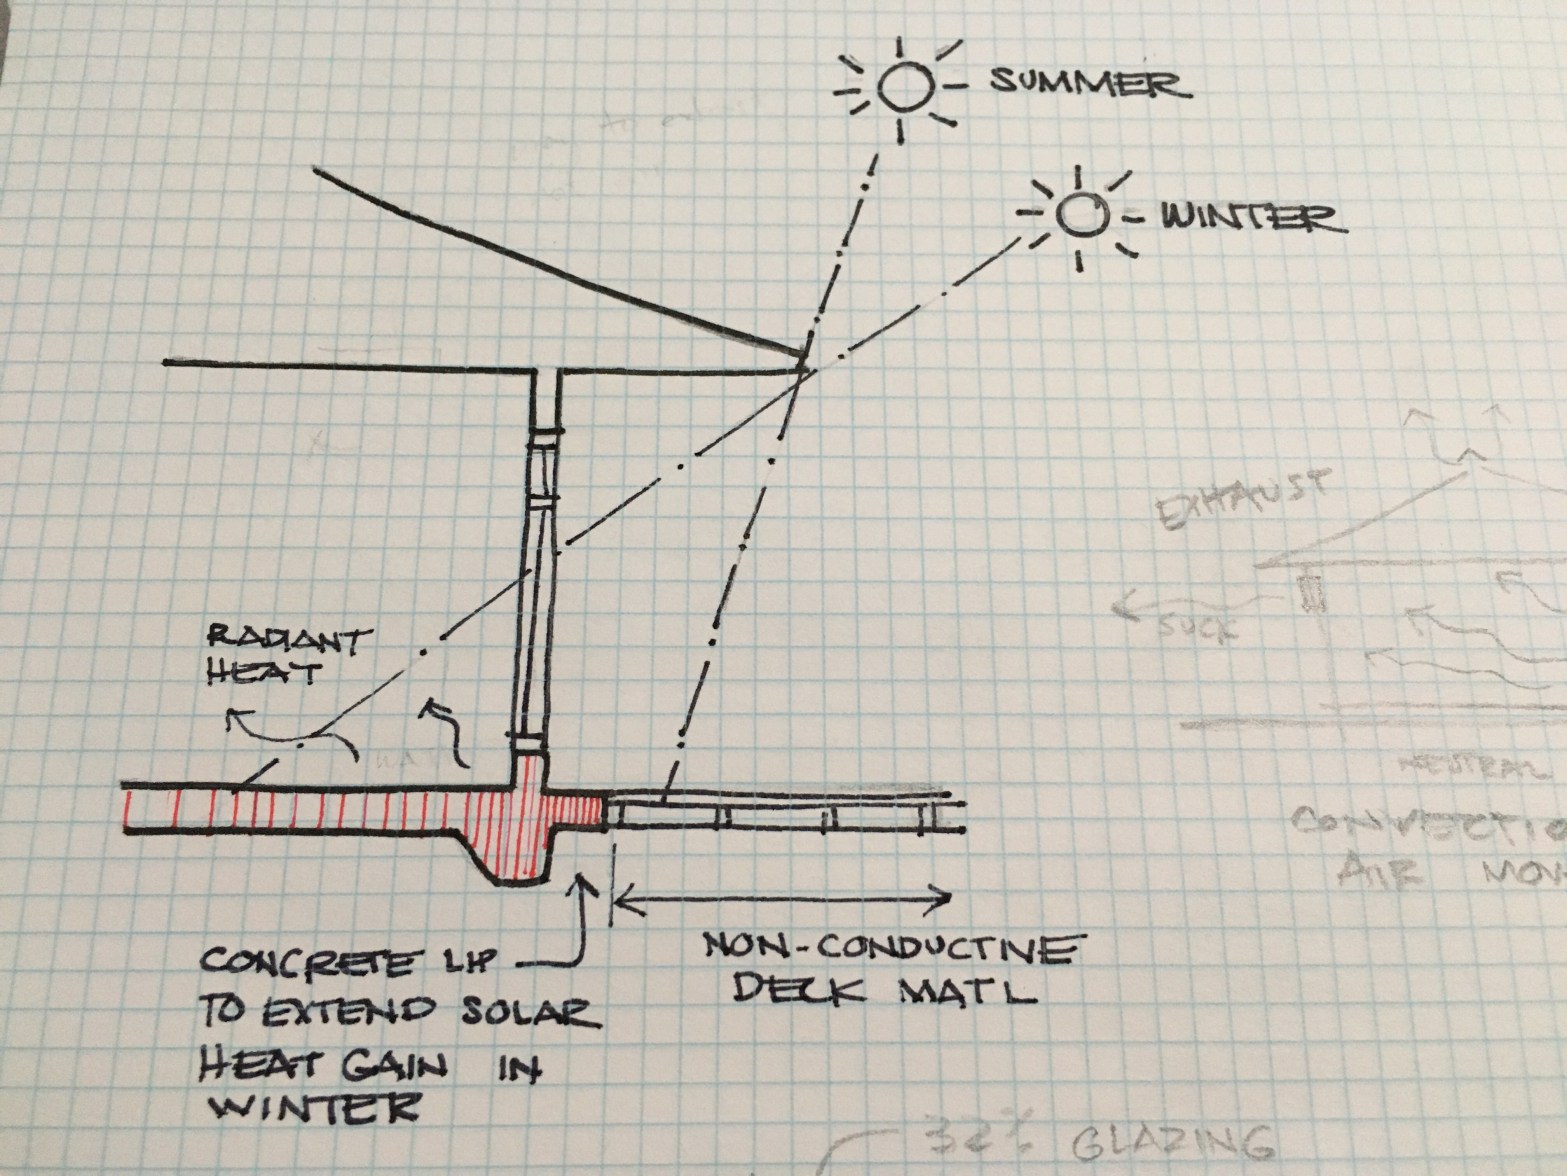 SUMMER
WINTER
EXHAUST
SUCK
RADIANT
HEAT
NEUTRAL
CONCRETE LIP
TO EXTEND SOLAR
HEAT GAIN IN
WINTER
NON-CONDUCTIVE
DECK MAT'L
CONVECTIO
AIR MOV
32% GLAZING